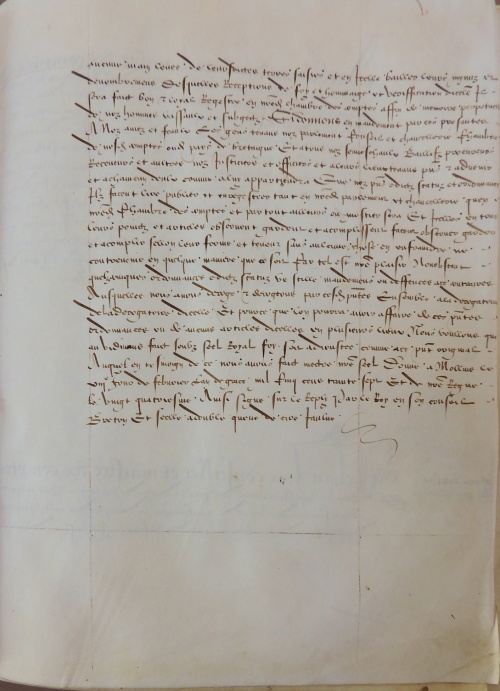 aucune main levee de leursdictes terres saisies et en icelle bailler leurs
denombremens Desquelles Receptions de foy et hommage et veriffication
sera fait bon et loyal Registre en nred chambre des comptes affin de memoire
de noz hommes vassaulx et subgectz Si donnons en mandement par ces presentes
A Noz amez et feaulx Les gens tenans nre parlement conseil et chancellerie Chambre
de nosd comptes oud pays de bretaigne Et a tous noz seneschaulx Baillifz prevosts
Receveurs et autres noz Justiciers et officiers et a leurs lieuxtenans pns et advenir
et a chacun deulx comme a luy appartiendra Que noz pns edictz statuz et ordonnances
Ilz facent lire publier et enregistrer en nosd parlement et chancellerie
nosd Chambre des comptes et par tout ailleurs ou mestier sera Et Icelles en tous
leurs poinctz et articles observent gardent et acomplissent facent observer garder
et acomplir selon leur forme et teneur sans aucune chose en enfraindre ne
contrevenir en quelque maniere que ce soit Car tel est nre plaisir Nonobstant
quelzconques ordonnances edictz statuz us stille mandemens ou deffences a ce contraires
Ausquelles nous avons deroge et derogeons par cesd pntes Ensemble a la derogatoire
de la derogatoire dicelle Et pource que lon pourra avoir affaire de ces pntes
ordonnances ou de aucuns articles dicelles en plusieurs lieux Nous voullons que
au vidimus fait soubz seel Royal foy soit adjoustee comme a ce pnt original
Auquel en tesmoing de ce nous avons fait mectre nre seel Donne a Molins le
viii jour de febvrier Lan de grace mil cinq cens trente sept Et de nre Regne
le vingt quatresme Ainsi signe sur le Reply Par le Roy en son conseil
Breton Et scelle a double queue de cire jaulne